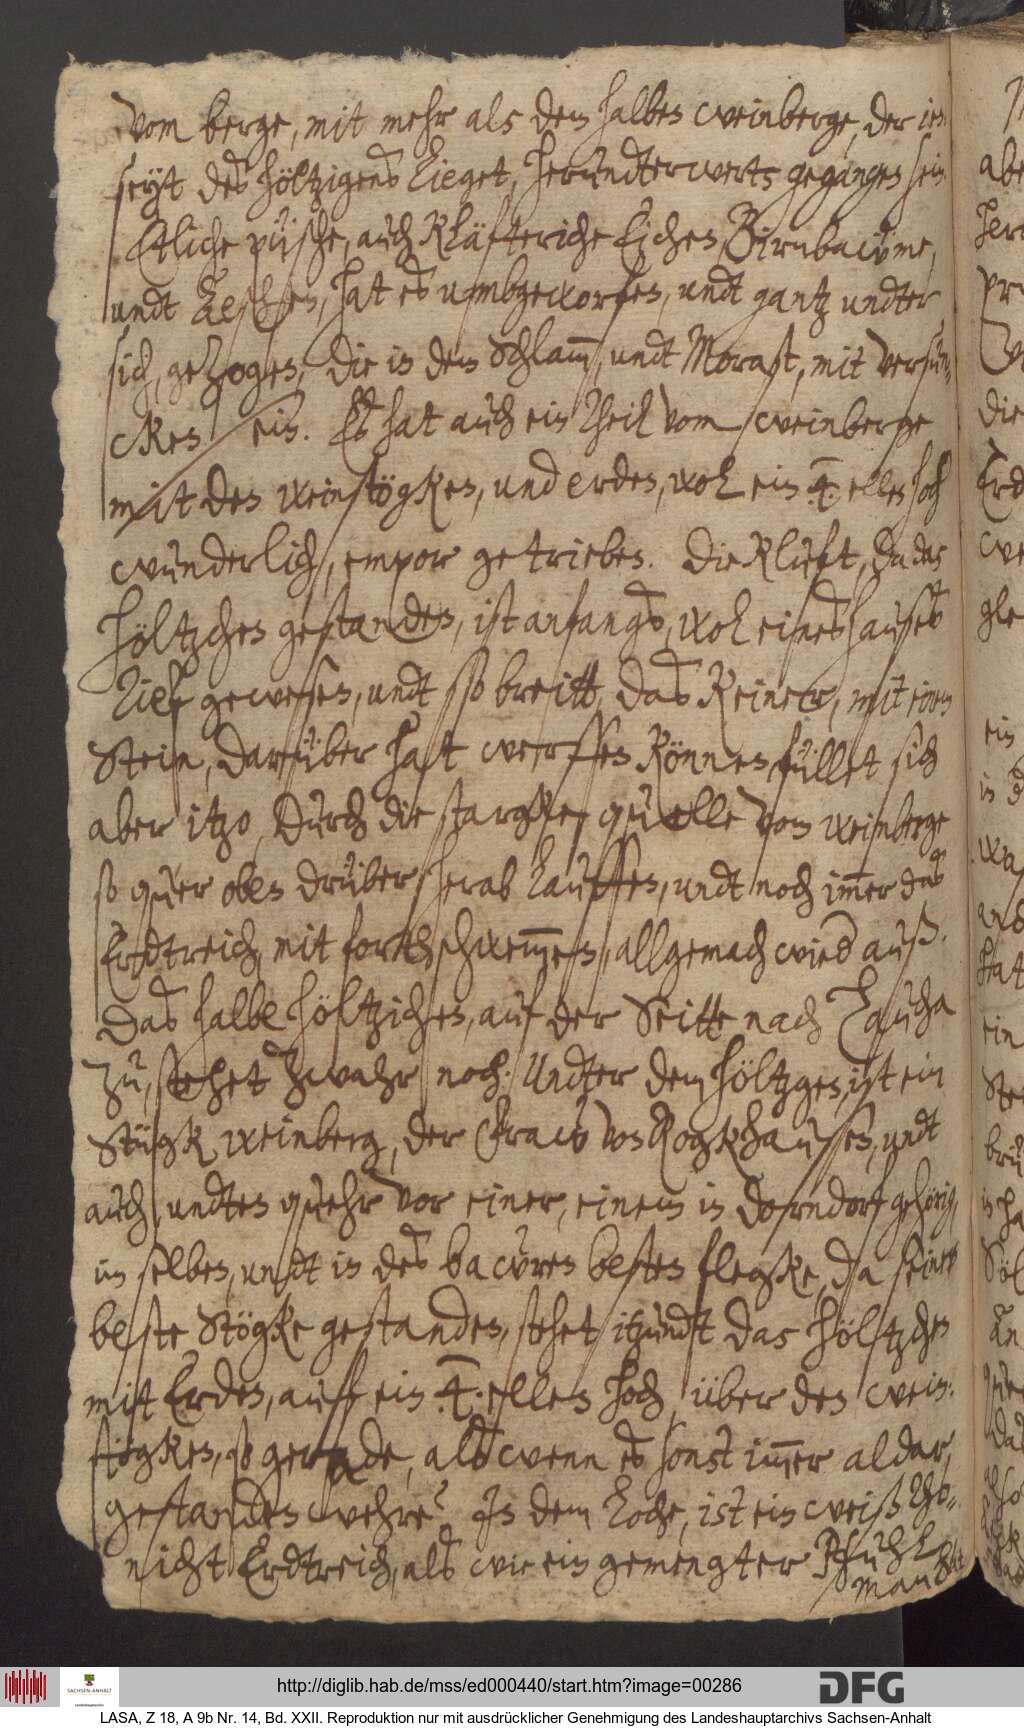 Vom berge, mit mehr als dem halben weinberge, der ien-
seyt des höltzigens lieget, herundterwerts gegangen sein
Etliche püsche, auch Kläfteriche Eichen, Birnbaüme,
undt Aespen, hat es umbgeworfen, undt gantz undter
sich, gezogen, die in dem Schlam, undt Morast, mit versun-
cken sein. Es hat auch ein theil vom weinberge
mit den weinstögken, und erden, wol ein .4. ellen hoch
wunderlich, empor getrieben. Die Kluft, da das
höltzchen gestanden, ist anfangs, wol eines hauses
tief gewesen, undt so breitt, das Keiner, mit einem
Stein, darüber hatt werffen Können, füllet sich
aber itzo, durch die stargken quelle vom weinberge
so quer oben drüber herab lauffen, undt noch immer das
Erdtreich, mit forth schwemmen, allgemach wied auß.
Das halbe höltzichen, auf der Seitte nach Taucha
zu, stehet zwahr noch. Undter dem höltzgen, ist ein
Stügk weinberg, der Fraw von Rogkhausen, undt
auch, undten quehr vor einer, einem in Dorndorf gehörig,
im selben, undt in des bawren besten flegke, da seine
beste Stögke gestanden, stehet itzundt das höltzchen
mit Erden, auff ein .4. ellen hoch, über den wein-
stögken, so gerade, als wenn es sonst immer aldar,
gestanden wehre. In dem Loche, ist ein weiß tho-
nicht Erdtreich, als wie ein gemengter Pfuhl
man hat
http://diglib.hab.de/mss/ed000440/start.htm?image=00286
SACHSEN-ANHALT
DFG
LASA, Z 18, A 9b Nr. 14, Bd. XXII. Reproduktion nur mit ausdrücklicher Genehmigung des Landeshauptarchivs Sachsen-Anhalt